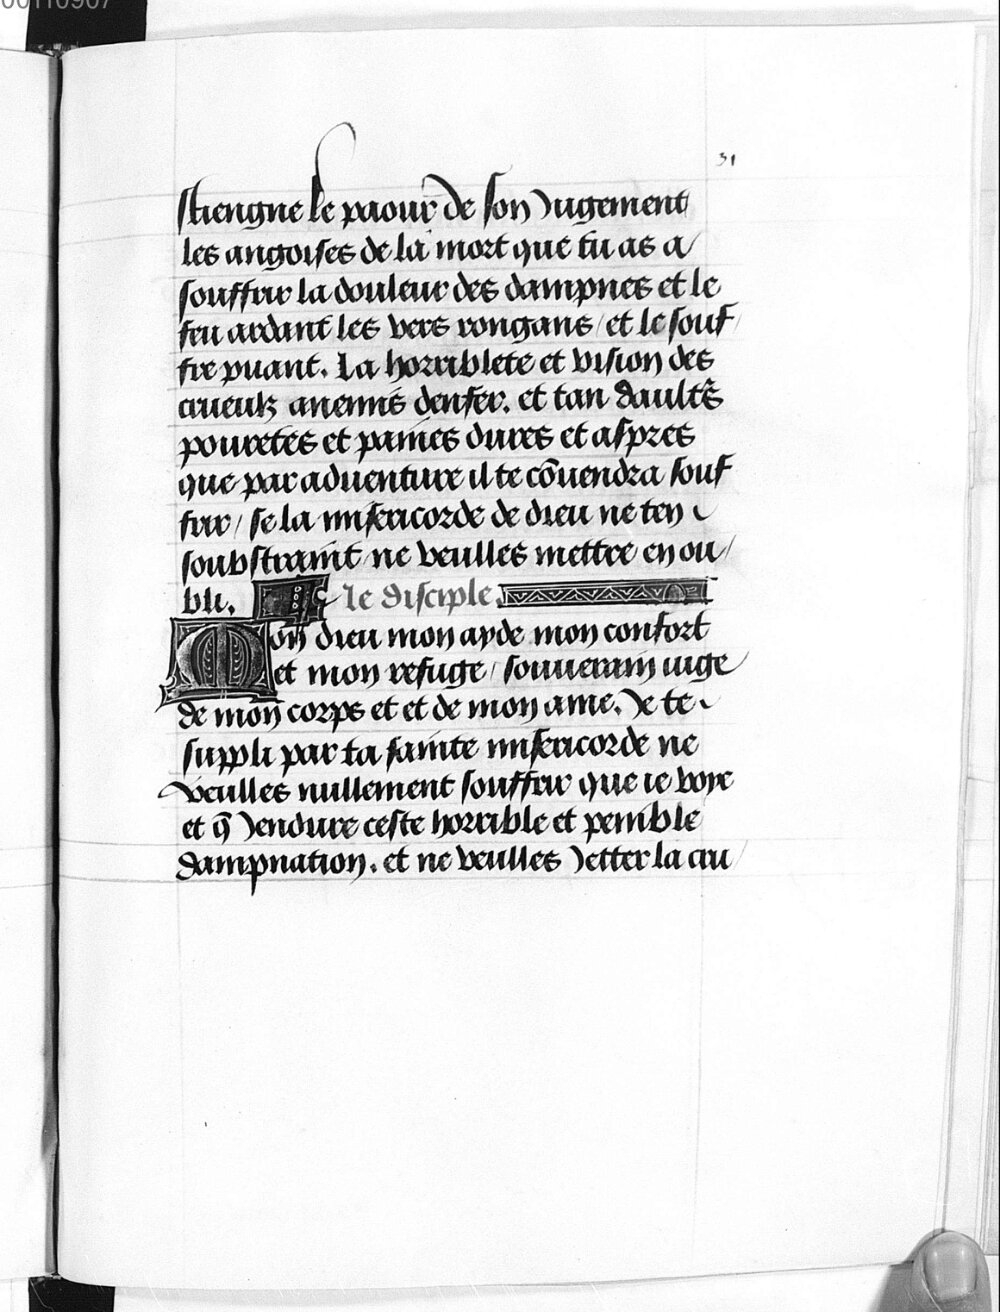 00110907
31
straengne le paour de son Jugement
les angoises de la mort que tu as a
souffrir la douleur des dampnes et le
feu ardant les vers rongans / et le souf
fre puant. La horriblete et vision des
crueulz anemis denfer. et tan daultrs
pouretes et paines dures et aspres
que par aduenture il te cōuendra souf
frir / se la misericorde de dieu ne ten
soubstraint ne veulles mettre en ou
bli. le disciple.
Mon dieu mon ayde mon confort
et mon refuge / souuerain iuge
de mon corps et et de mon ame. Je te
suppli par ta sainte misericorde ne
veulles nullement souffrir que ie voye
et q̄ Jendure ceste horrible et penible
dampnation. et ne veulles Jetter la cru